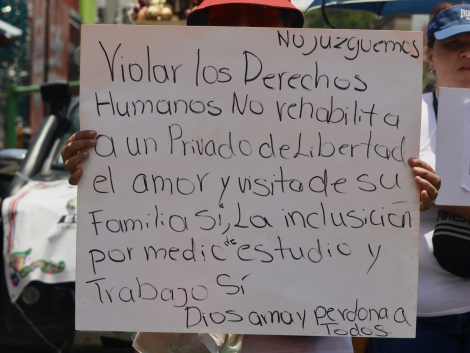 No juzguemos
Violar los Derechos
Humanos No rehabilita
a un Privado de Libertad
el amor y visita de su
Familia Sí, La inclusición
por medio de estudio y
Trabajo Sí
Dios ama y perdona a
Todos